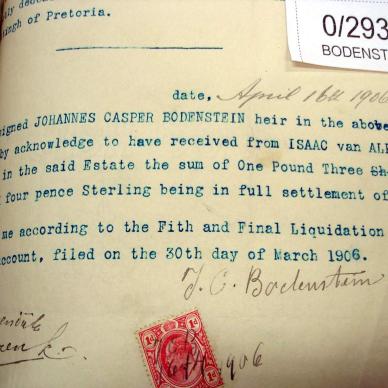 ly dece
ngh of Pretoria.
0/293
BODENST
date, April 16th 1906
igned JOHANNES CASPER BODENSTEIN heir in the above
by acknowledge to have received from ISAAC van AL
in the said Estate the sum of One Pound Three Sh
four pence Sterling being in full settlement of
me according to the Fith and Final Liquidation
ccount, filed on the 30th day of March 1906.
J. C. Bodenstein
1d 1d
1906